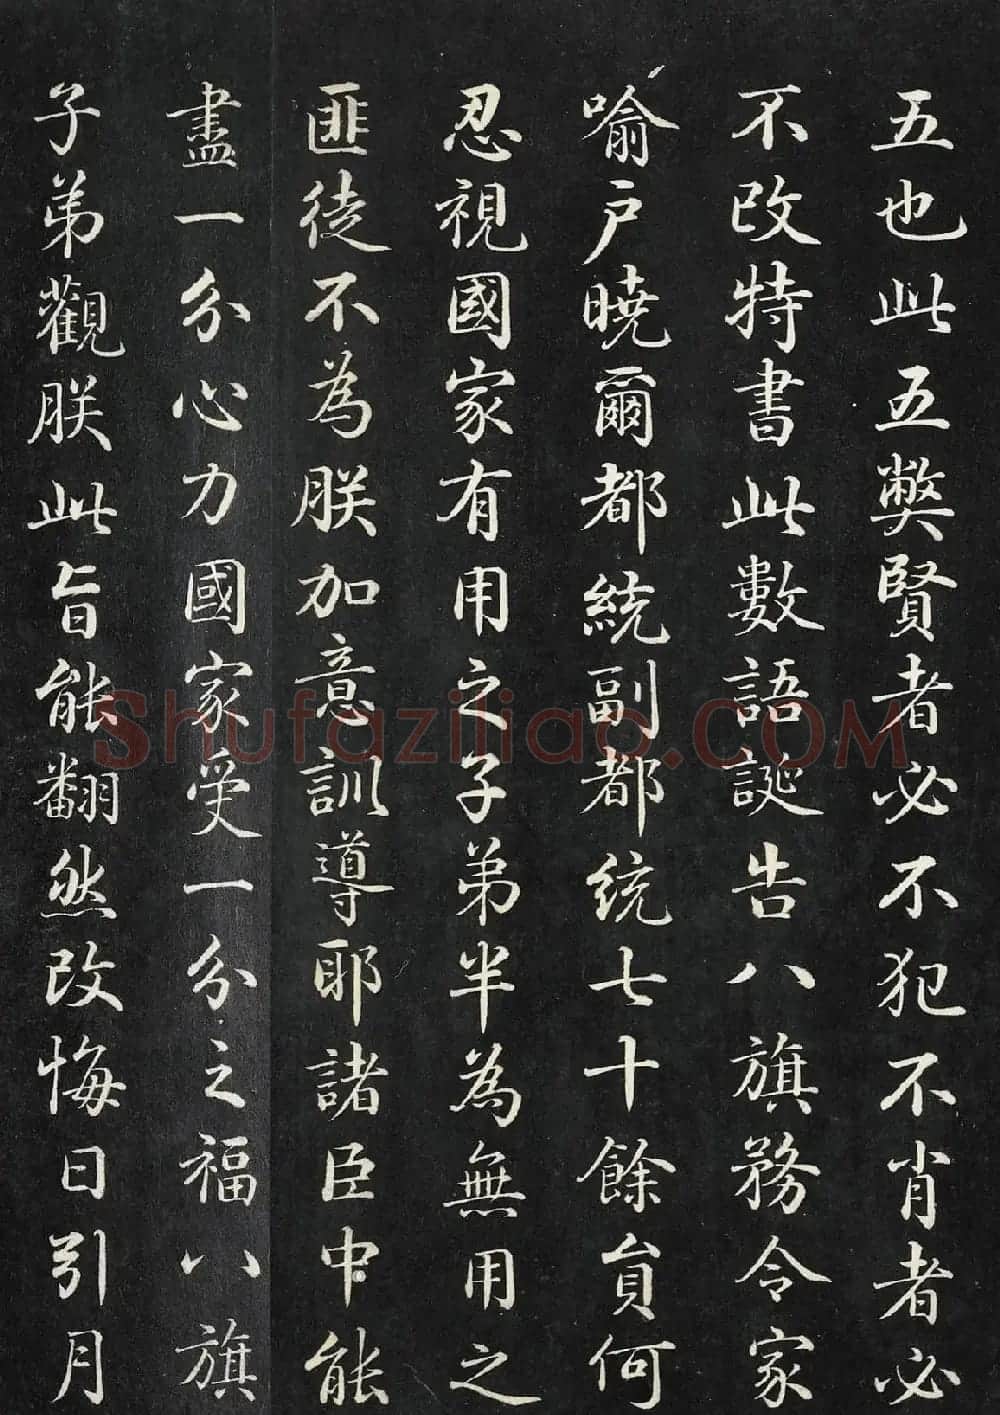 五也此五弊賢者必不犯不肖者必
不改特書此數語誕告八旗務令家
喻戶曉爾都統副都統七十餘員何
忍視國家有用之子弟半為無用之
匪徒不為朕加意訓導耶諸臣中能
盡一分心力國家受一分之福八旗
子弟觀朕此旨能翻然改悔日引月
Shufaziliao.COM